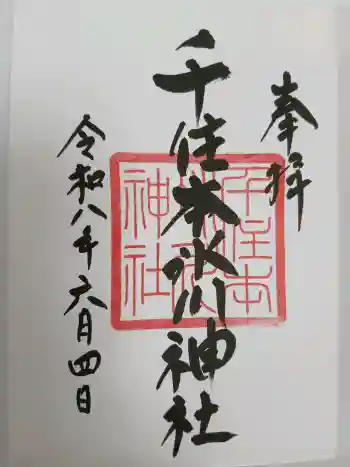 奉拝
千住本氷川神社
令和八年六月四日
千住本
氷川
神社